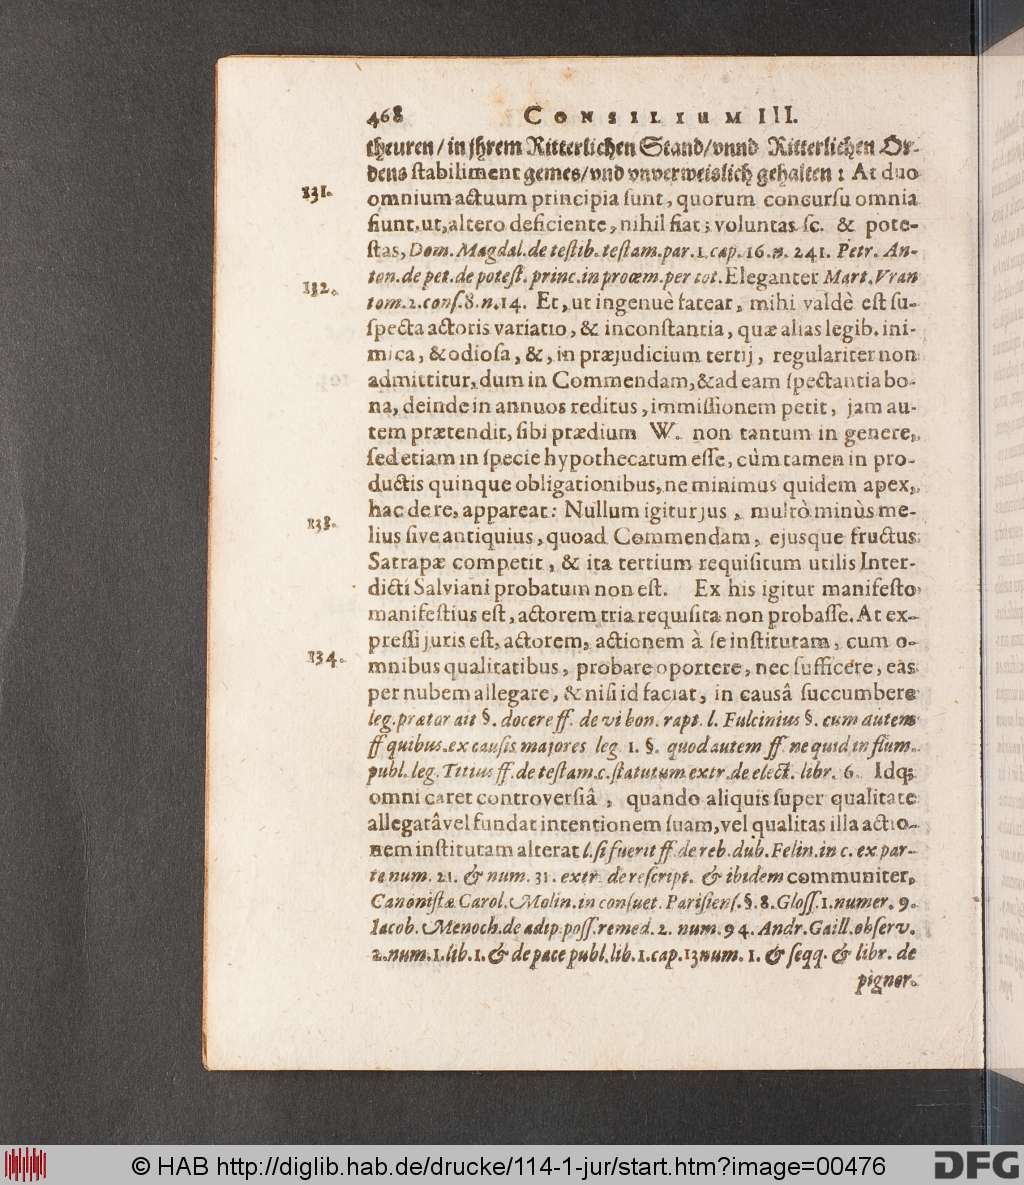 468 CONSILIUM III.
theuren / in jhrem Ritterlichen Stand / vnnd Ritterlichen Or-
dens stabiliment gemes / vnd vnverweislich gehalten : At duo
131. omnium actuum principia sunt, quorum concursu omnia
fiunt, ut, altero deficiente, nihil fiat; voluntas sc. & pote-
stas, Dom. Magdal. de testib. testam. par. 1. cap. 16. n. 241. Petr. An-
ton. de pet. de potest. princ. in proœm. per tot. Eleganter Mart. Vran
132. tom. 2. cons. 8. n. 14. Et, ut ingenuè fatear, mihi valdè est su-
specta actoris variatio, & inconstantia, quæ alias legib. ini-
mica, & odiosa, &, in præjudicium tertij, regulariter non
admittitur, dum in Commendam, & ad eam spectantia bo-
na, deinde in annuos reditus, immissionem petit, jam au-
tem prætendit, sibi prædium W. non tantum in genere,
sed etiam in specie hypothecatum esse, cùm tamen in pro-
ductis quinque obligationibus, ne minimus quidem apex,
hac de re, appareat: Nullum igitur jus, multò minùs me-
133. lius sive antiquius, quoad Commendam, ejusque fructus
Satrapæ competit, & ita tertium requisitum utilis Inter-
dicti Salviani probatum non est. Ex his igitur manifesto
manifestius est, actorem tria requisita non probasse. At ex-
pressi juris est, actorem, actionem à se institutam, cum o-
134. mnibus qualitatibus, probare oportere, nec sufficere, eas
per nubem allegare, & nisi id faciat, in causâ succumbere
leg. prætor ait §. docere ff. de vi bon. rapt. l. Fulcinius §. cum autem
ff quibus. ex causis majores leg. 1. §. quod autem ff. ne quid in flum.
publ. leg. Titius ff. de testam. c. statutum extr. de elect. libr. 6. Idq;
omni caret controversiâ, quando aliquis super qualitate
allegatâ vel fundat intentionem suam, vel qualitas illa actio-
nem institutam alterat l. si fuerit ff. de reb. dub. Felin. in c. ex par-
te num. 21. & num. 31. extr. de rescript. & ibidem communiter,
Canonistæ Carol. Molin. in consuet. Parisiens. §. 8. Gloss. 1. numer. 9.
Iacob. Menoch. de adip. poss. remed. 2. num. 94. Andr. Gaill. observ.
2. num. 1. lib. 1. & de pace publ. lib. 1. cap. 13 num. 1. & seqq. & libr. de
pignor.
© HAB http://diglib.hab.de/drucke/114-1-jur/start.htm?image=00476
DFG